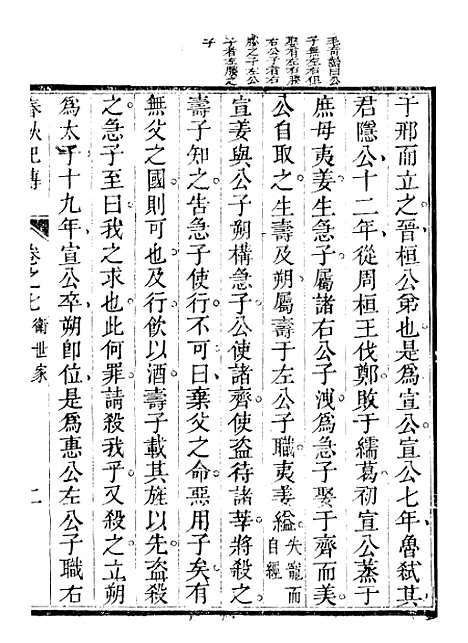 毛奇齡曰公
子無左右但
取有左右媵
右公子者右
媵之子左公
子者左媵之
子
于邢而立之晉桓公弟也是爲宣公宣公七年魯弒其
君隱公十二年從周桓王伐鄭敗于繻葛初宣公烝于
庶母夷姜生急子屬諸右公子洩爲急子娶于齊而美
公自取之生壽及朔屬壽于左公子職夷姜縊失寵而自經
宣姜與公子朔構急子公使諸齊使盜待諸莘將殺之
壽子知之告急子使行不可曰棄父之命惡用子矣有
無父之國則可也及行飲以酒壽子載其旌以先盜殺
之急子至曰我之求也此何罪請殺我乎又殺之立朔
爲太子十九年宣公卒朔卽位是爲惠公左公子職右
春秋紀傳
卷之七
衛世家
二